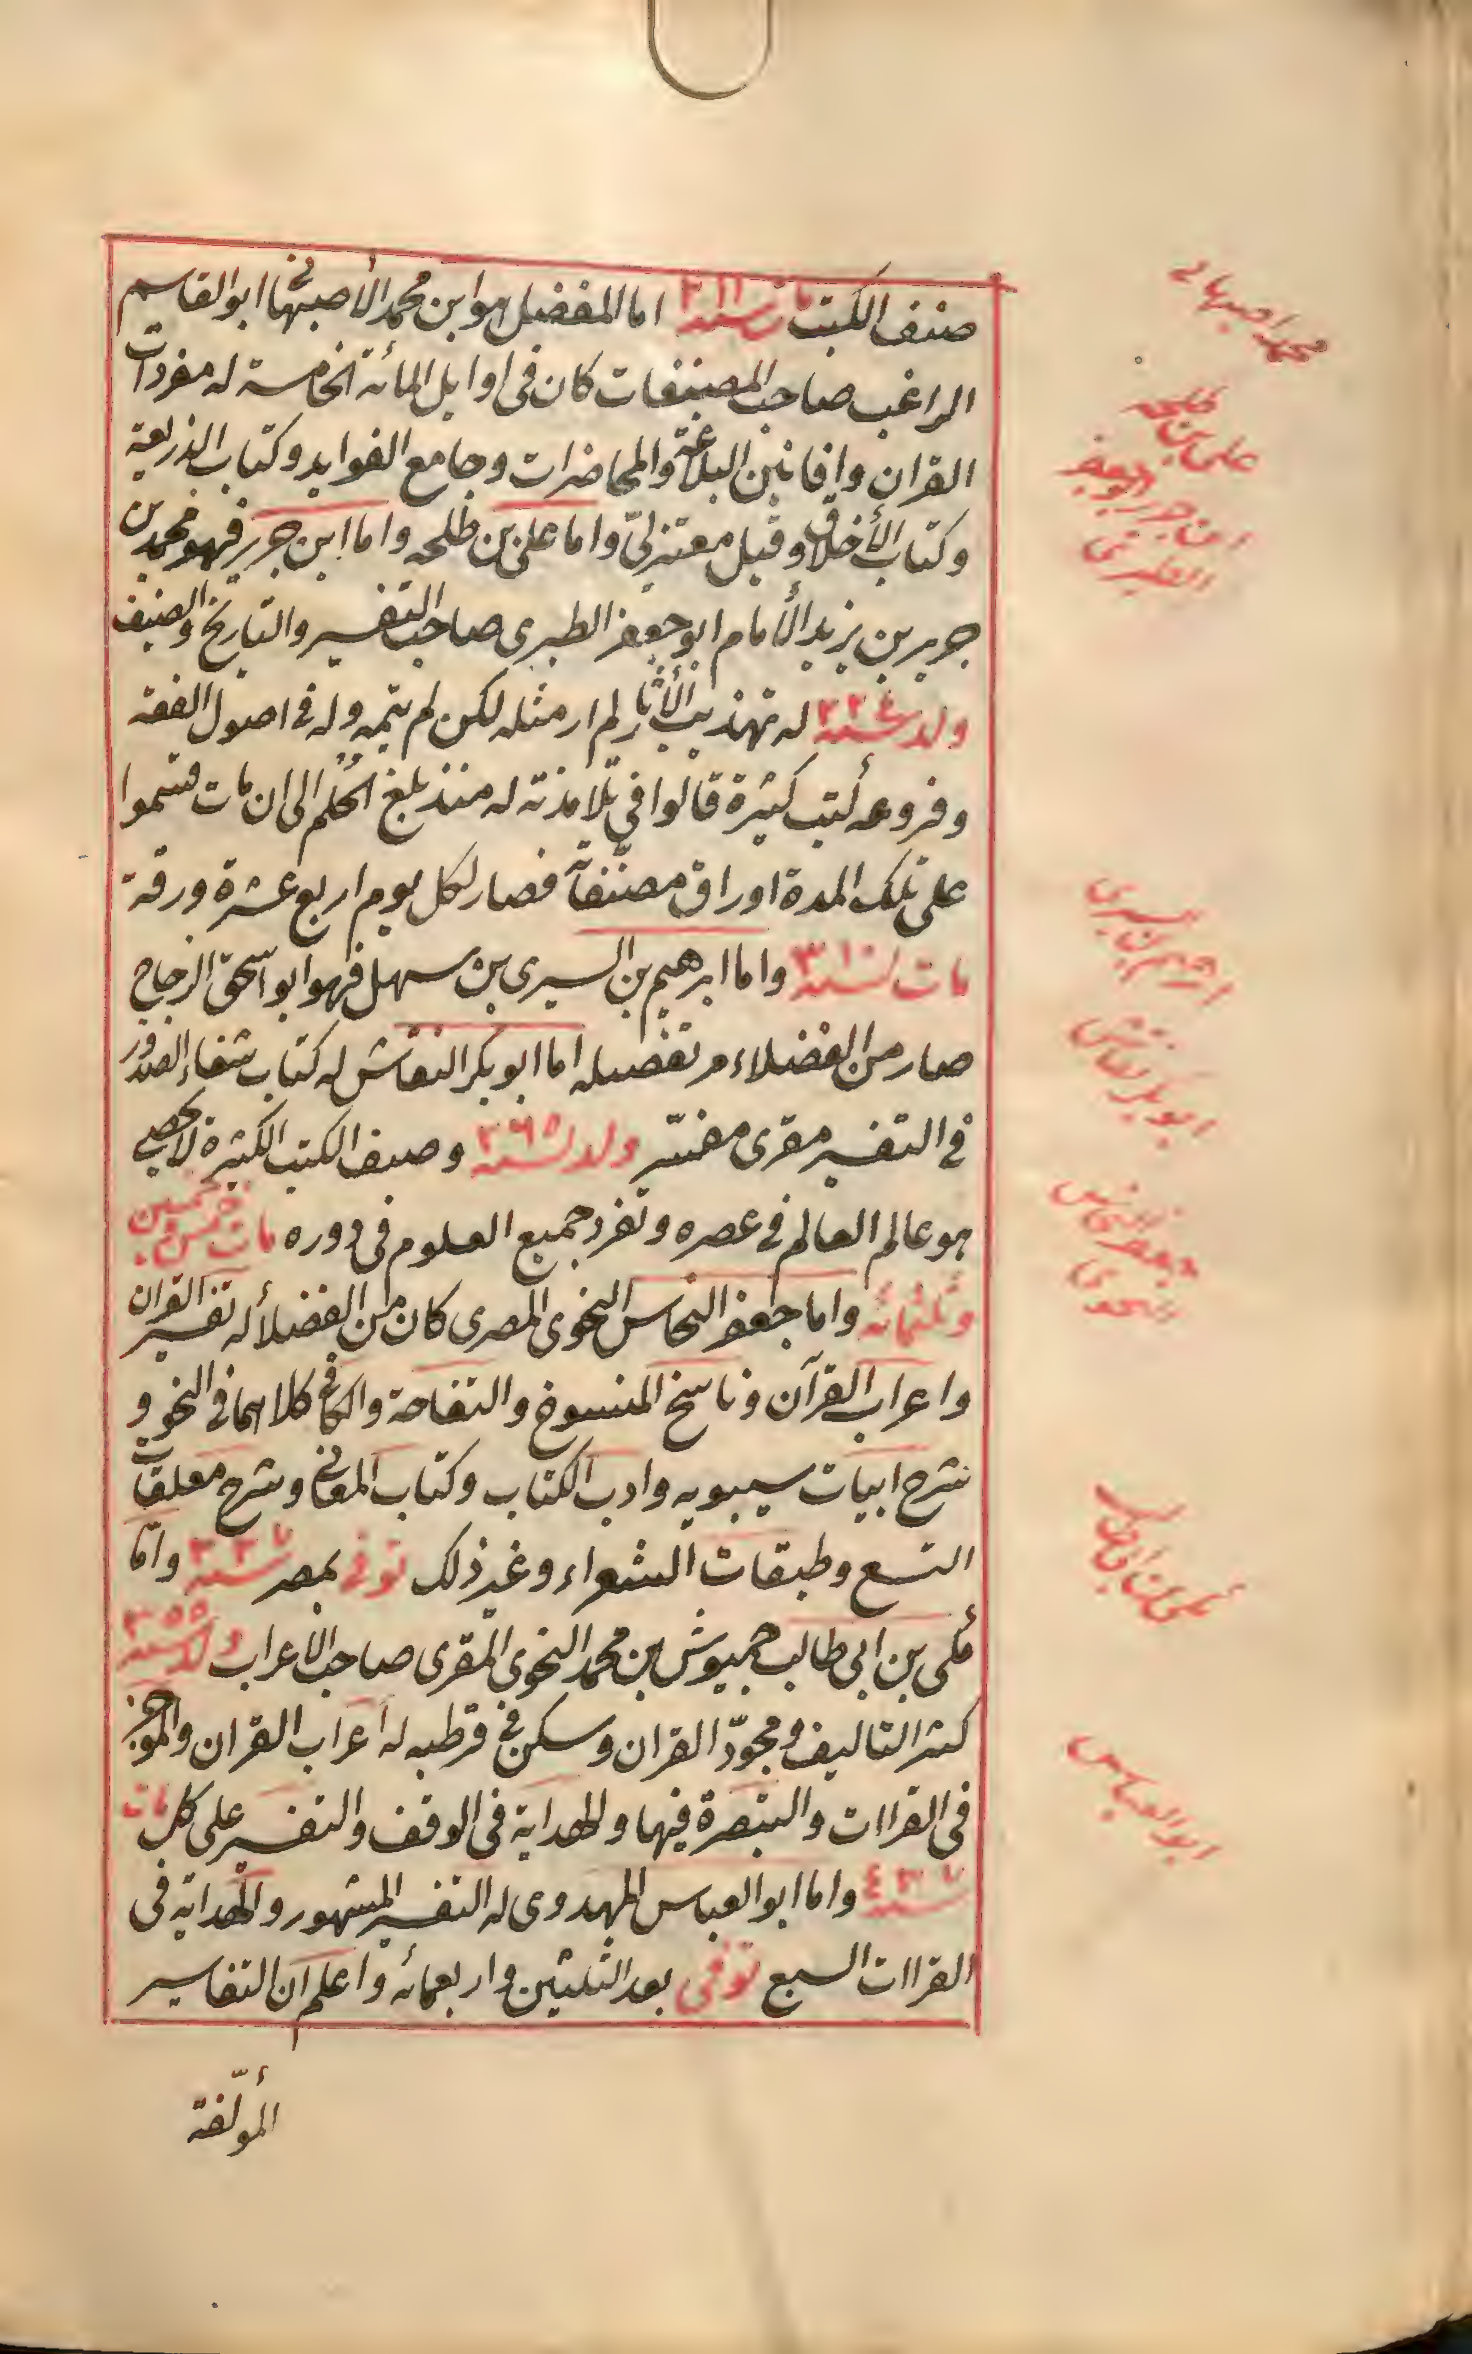 صنف الكتب مات سنة ٣١١ اما المفضل هو ابن محمد الأصبهانى ابو القاسم
الراغب صاحب المصنفات كان فى اوايل المائة الخامسة له مفردات
القران وافانين البلاغة والمحاضرات وجامع الفوايد وكتاب الذريعة
وكتاب الأخلاق وقيل معتزلىّ واما على بن طلحه واما ابن جرير فهو محمد بن
جرير بن يزيد الأمام ابو جعفر الطبرى صاحب التفسير والتاريخ والصنيف
ولد سنة ٢٢٤ له تهذيب الأثار لم ار مثله لكن لم يتمه وله فى اصول الفقه
وفروعه كتب كثيرة قالوا فى تلامذته له منذ بلغ الحُلم الى ان مات قسموا
على تلك المدة اوراق مصنّفاته فصار لكل يوم اربع عشرة ورقة
مات سنة ٣١٠ واما ابرهيم بن السيرى بن سهل فهو ابو اسحق الزجاج
صار من الفضلاء مر تفصيله اما ابو بكر النقاش له كتاب شفاء الصدور
فى التفسير مقرى مفسّر ولد سنة ٢٦٥ وصنف الكتب الكثيرة لا يحصى
هو عالم العالم فى عصره وتفرد جميع العلوم فى دوره مات خمس وخمسين
وثلثمائه واما جعفر النحاس النحوى المصرى كان من الفضلأ له تفسير القران
واعراب القرآن وناسخ المنسوخ والتفاحة والكافى كلاهما فى النحو و
شرح ابيات سيبويه وادب الكتاب وكتاب المعانى وشرح معلقات
التسع وطبقات الشعراء وغير ذلك توفى بمصر سنة ٣٣٧ وامّا
مُكى بن ابى طالب حميوش بن محمد النحوى المقرى صاحب الاعراب ولد سنة ٣٥٥
كثر التاليف ومجودّ القران وسكن فى قرطبه له اعراب القران والموجز
فى القراات والتبصرة فيها والهداية فى الوقف والتفسير على كل مات
سنة ٤٣٧ واما ابو العباس المهدوى له التفسير المشهور والهداية فى
القراات السبع توفى بعد الثلثين واربعمائه واعلم ان التفاسير
المؤلّفة
محمد اصبهانى
على بن طلحه
ابن جرير ابو جعفر
الطبرى
ابرهيم بن السيرى
ابو بكر نقاش
جعفر النحاس
النحوى
مكى بن ابى طالب
ابو العباس